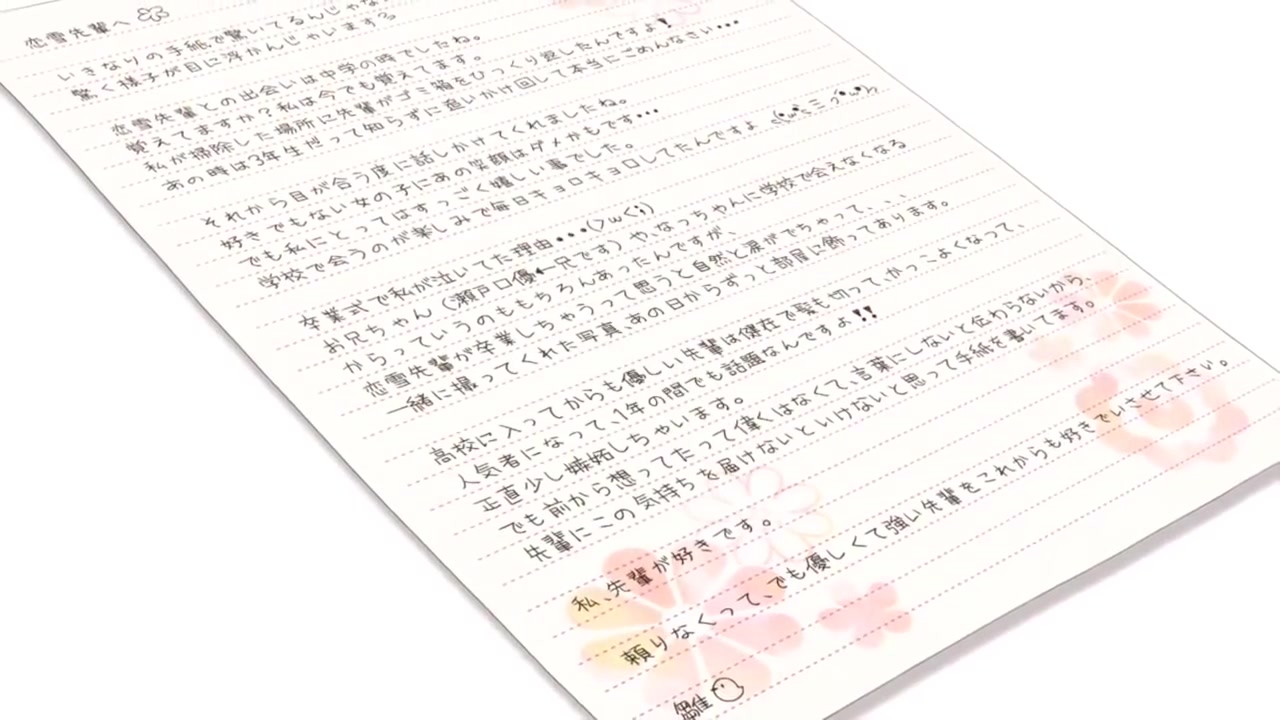 恋雪先輩へ
いきなりの手紙で驚いてるんじゃな
驚く様子が目に浮かんじゃいますう
恋雪先輩との出会いは中学の時でしたね。
覚えてますか？私は今でも覚えてます。
私が掃除した場所に先輩がゴミ箱をひっくり返したんですよ！
あの時は3年生だって知らずに追いかけ回して本当にごめんなさい…
それから目が合う度に話しかけてくれましたね。
好きでもない女の子にあの笑顔はダメかもです…
でも私にとってはすっごく嬉しい事でした。
学校で会うのが楽しみで毎日キョロキョロしてたんですよ
卒業式で私が泣いてた理由…(>ω<;)
お兄ちゃん（瀬戸口優←兄です）や、なっちゃんに学校で会えなくなる
からっていうのももちろんあったんですが、
恋雪先輩が卒業しちゃうって思うと自然と涙がでちゃって、、、
一緒に撮ってくれた写真、あの日からずっと部屋に飾ってあります。
高校に入ってからも優しい先輩は健在で髪も切って、かっこよくなって、
人気者になって、1年の間でも話題なんですよ!!
正直少し嫉妬しちゃいます。
でも前から想ってたって偉くはなくて、言葉にしないと伝わらないから、
先輩にこの気持ちを届けないといけないと思って手紙を書いてます。
私、先輩が好きです。
頼りなくって、でも優しくて強い先輩をこれからも好きでいさせて下さい。
雛